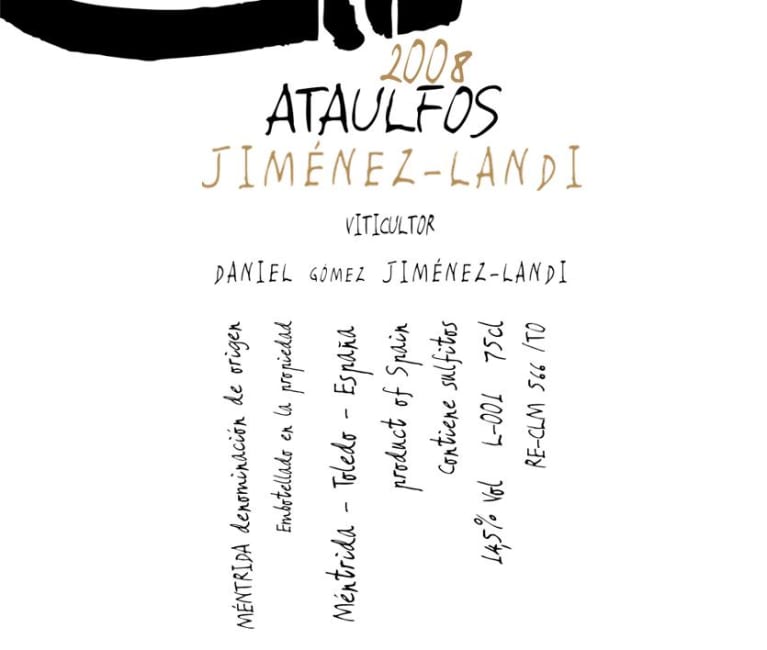 2008
ATAULFOS
JIMÉNEZ-LANDI
VITICULTOR
DANIEL GÓMEZ JIMÉNEZ-LANDI
MÉNTRIDA denominación de origen
Embotellado en la propiedad
Méntrida - Toledo - España
product of Spain
Contiene sulfitos
14,5% Vol L-001 75cl
RE-CLM 566 /TO